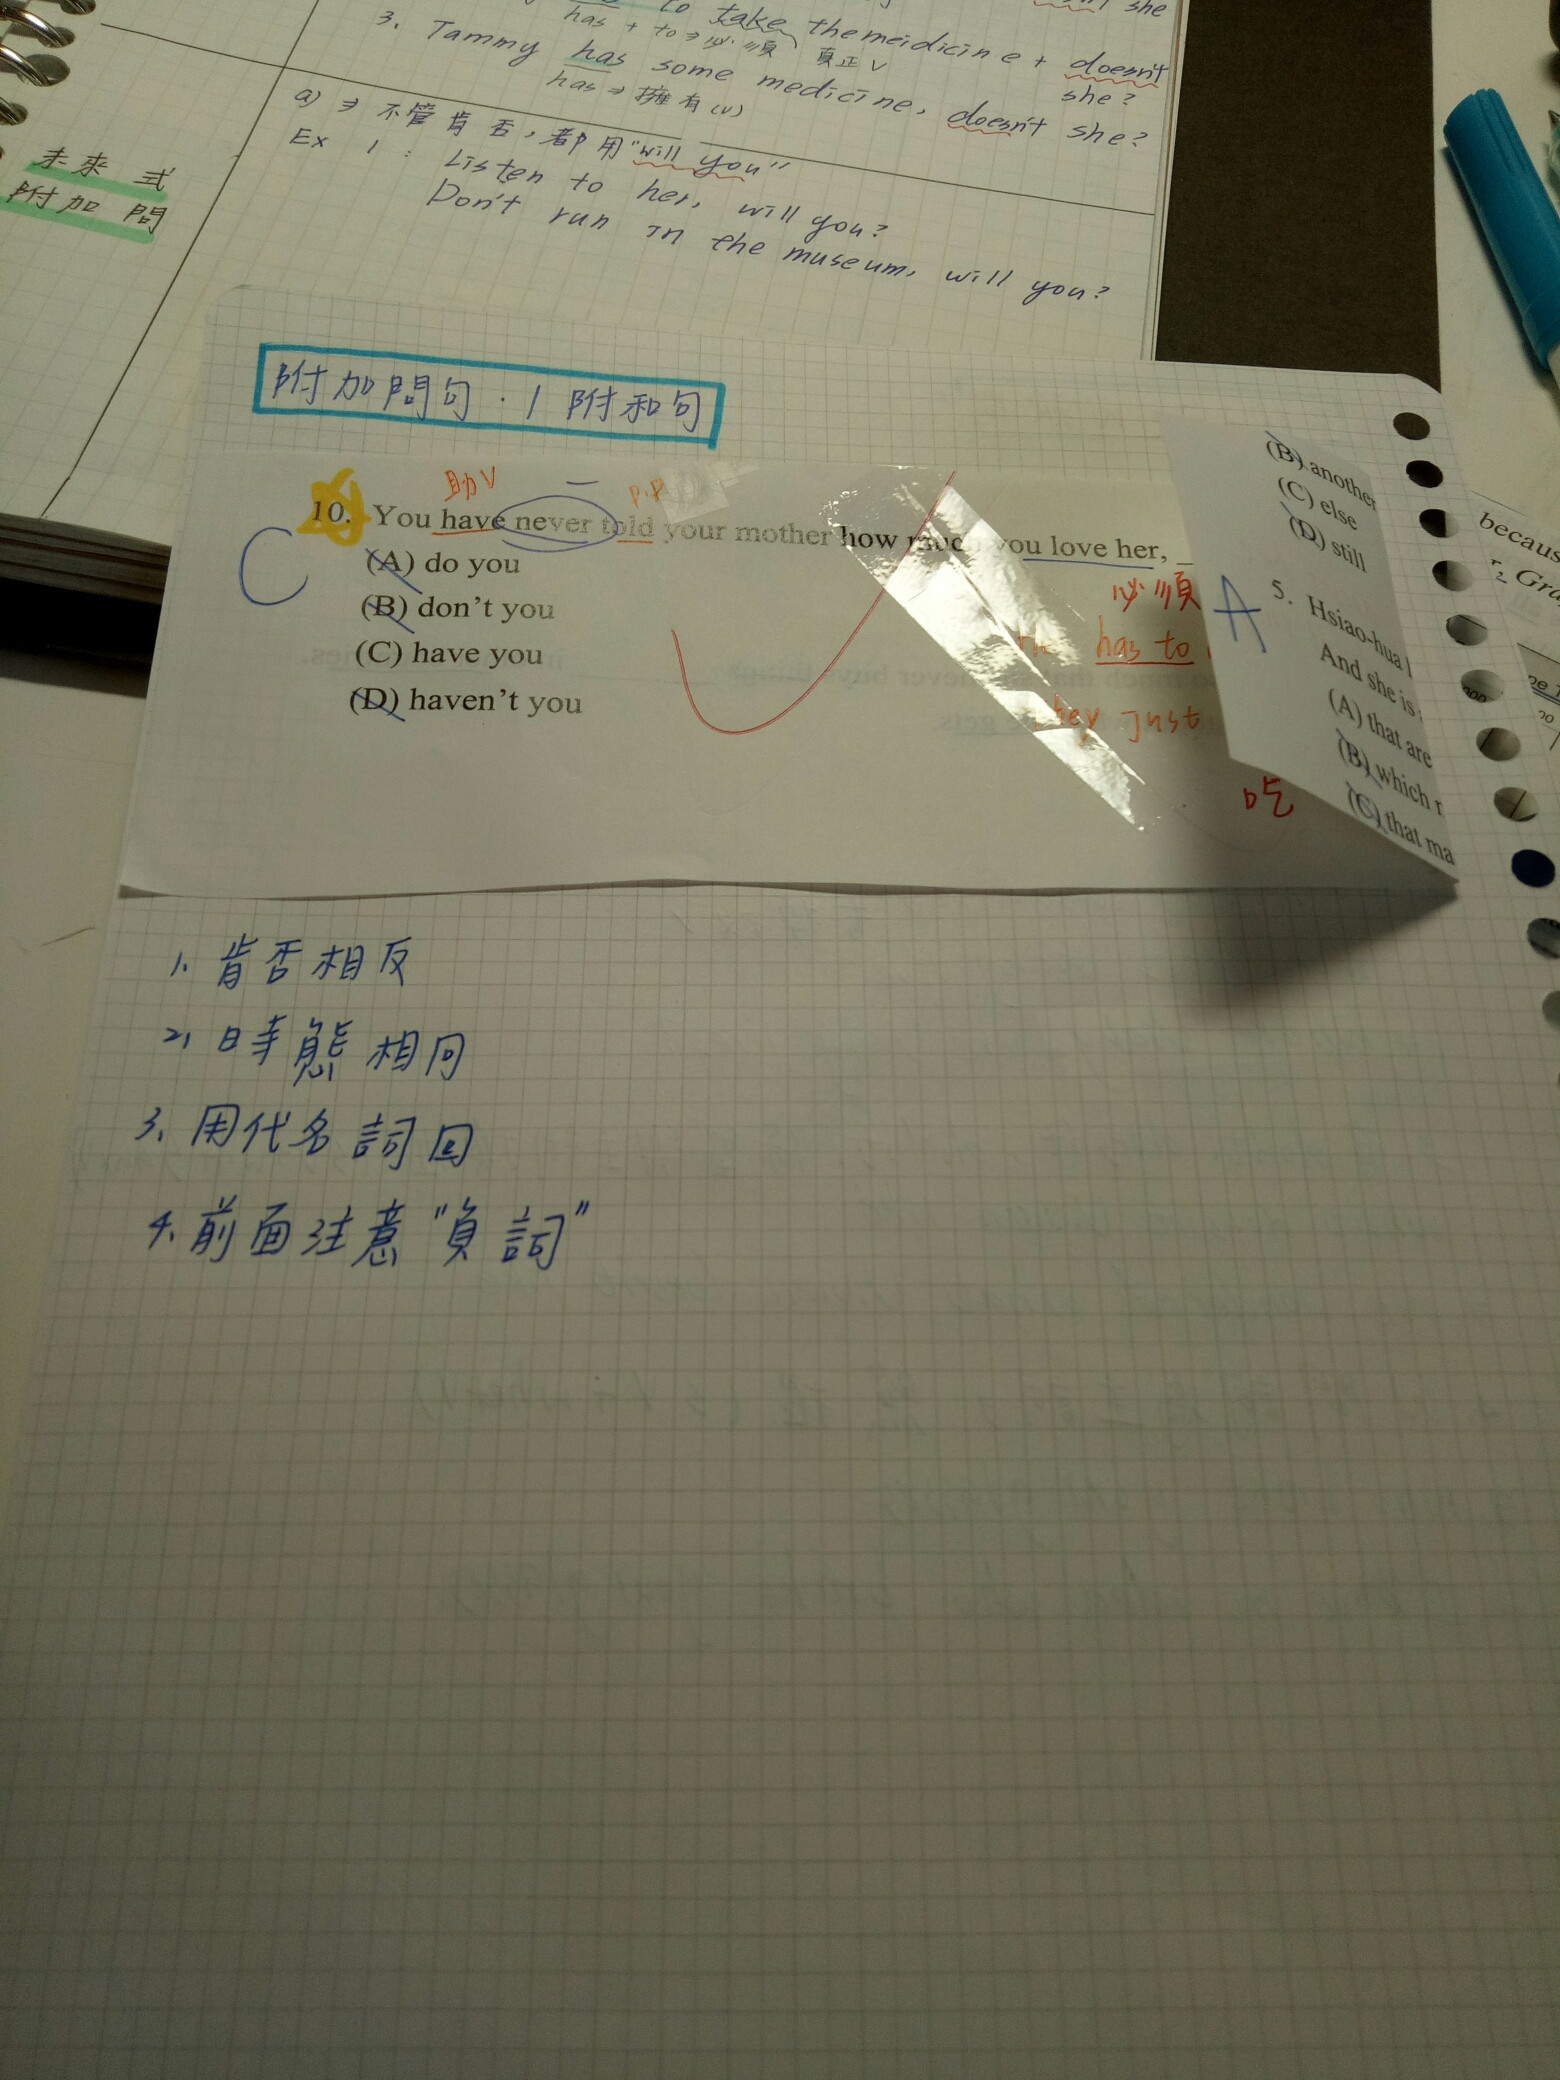 she
to take the meidicine + doesn't she?
has + to ⇒ 必須 真正V
3. Tammy has some medicine, doesn't she?
has ⇒ 擁有(V)
a) ⇒ 不管肯否,都用"will you"
Ex 1: Listen to her, will you?
Don't run in the museum, will you?
未來式
附加問
附加問句·1附和句
助V
p.p
10. You have never told your mother how much you love her,
C
(A) do you
(B) don't you
(C) have you
(D) haven't you
必須
has to
they just
吃
(B) another
(C) else
(D) still
A
5. Hsiao-hua
And she is
(A) that are
(B) which
(C) that ma
becaus
Gra
1. 肯否相反
2. 時態相同
3. 用代名詞回
4. 前面注意"負詞"